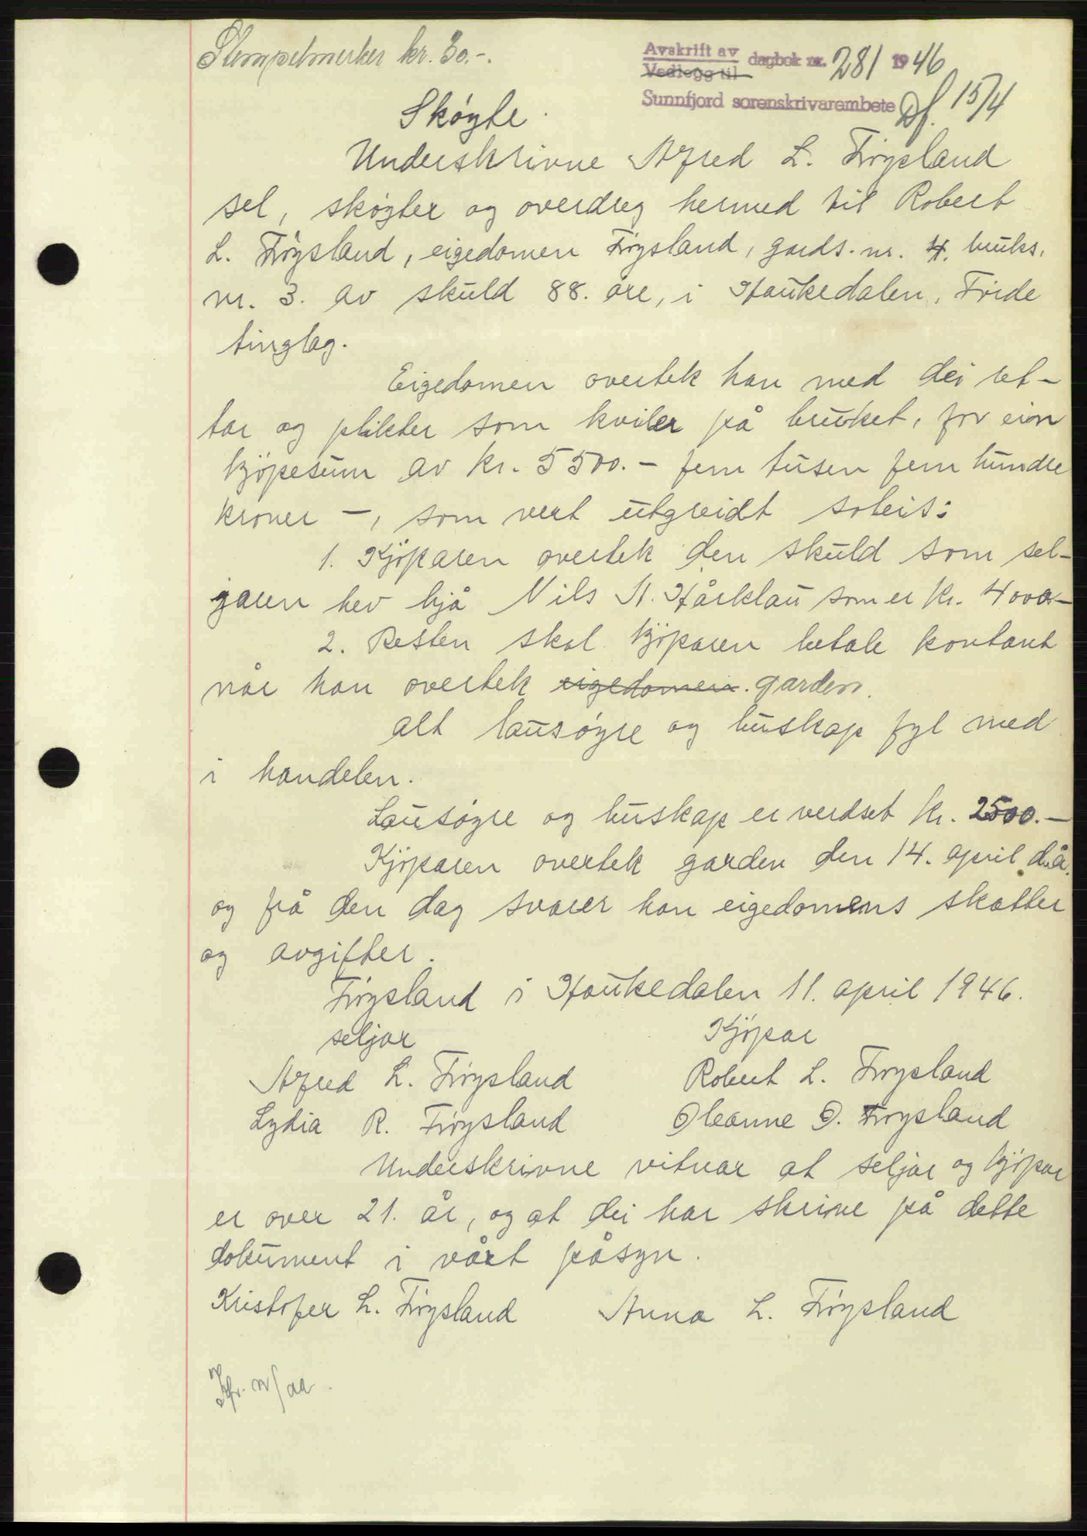 Stempelmerker kr. 30.-.
Avskrift av
Vedlegg til
dagbok nr. 281 1946
Sunnfjord sorenskrivarembete 15/4
Skøyte
Underskrivne Alfred L. Frøysland
sel, skøyter og overdreg hermed til Robert
L. Frøysland, eigedomen Frøysland, gards. nr. 4. bruks.
nr. 3. av skuld 88. øre, i Haukedalen, Førde
tinglag.
Eigedomen overtek han med dei ret-
tar og plikter som kviler på bruket, for ein
kjøpesum av kr. 5500.- fem tusen fem hundre
kroner -, som vert utgreidt soleis:
1. Kjøparen overtek den skuld som sel-
jaren hev hjå Nils N. Hårklau som er kr. 4000.-
2. Resten skal kjøparen betale kontant
når han overtek eigedomen. garden.
alt lausøyre og buskap fyl med
i handelen.
Lausøyre og buskap er verdset kr. 2500.-
Kjøparen overtek garden den 14. april d.å.
og frå den dag svarer han eigedomens skatter
og avgifter.
Frøysland i Haukedalen 11. april 1946.
seljar Kjøpar
Alfred L. Frøysland Robert L. Frøysland
Lydia R. Frøysland Oleanne O. Frøysland
Underskrivne vitnar at seljar og kjøpar
er over 21. år, og at dei har skrive på dette
dokument i vårt påsyn.
Kristofer L. Frøysland Anna L. Frøysland